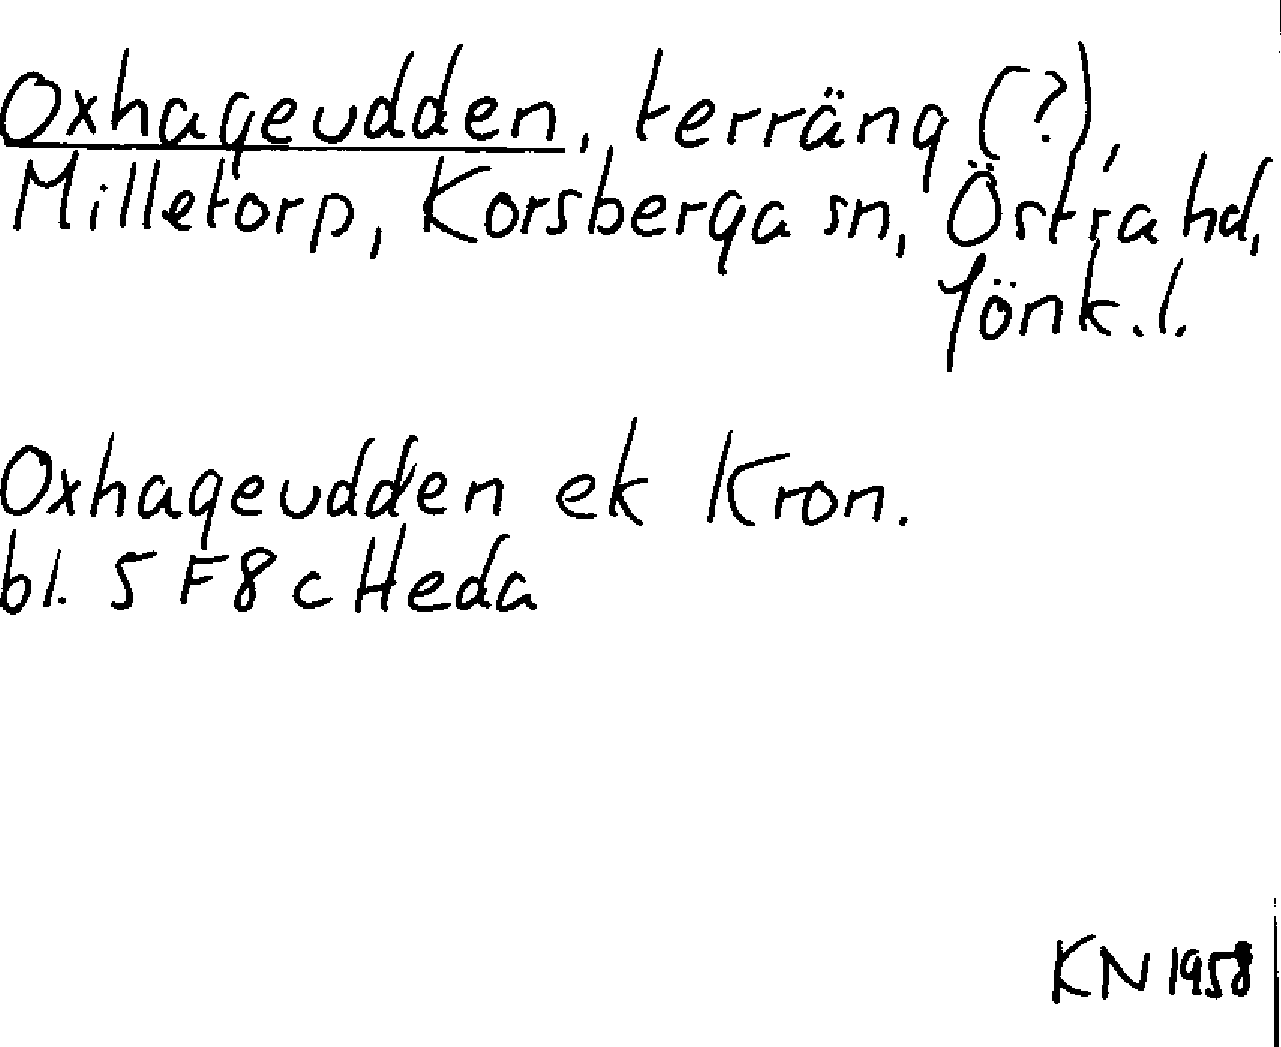 Oxhageudden, terräng (?),
Milletorp, Korsberga sn, Östra hd,
Jönk. l.
Oxhageudden ek Kron.
bl. 5 F 8 c Heda
KN 1958